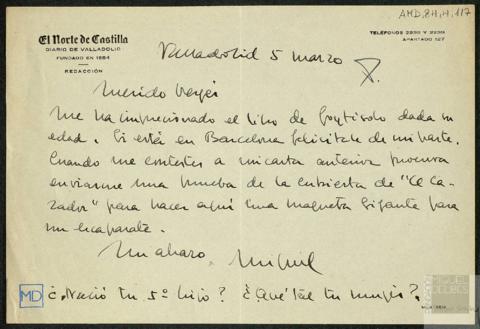 AMD, 84, 4, 117
El Norte de Castilla
DIARIO DE VALLADOLID
FUNDADO EN 1854
REDACCIÓN
TELÉFONOS 2235 Y 2239
APARTADO 127
Valladolid 5 marzo
Querido Vergés
Me ha impresionado el libro de Goytisolo dada su
edad. Si está en Barcelona felicítale de mi parte.
Cuando me contestes a mi carta anterior procura
enviarme una prueba de la cubierta de "El Ca-
zador" para hacer aquí una maqueta gigante para
un escaparate.
Un abrazo
Miguel
MD
¿Nació tu 5º hijo? ¿Qué tal tu mujer?
MIGUEL
DELIBES